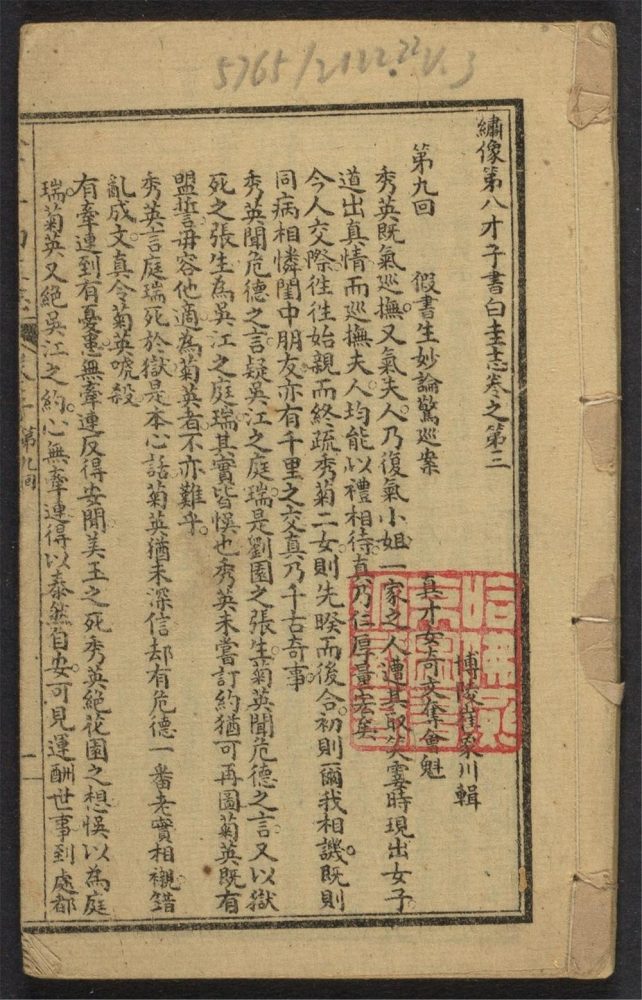 5765/2122.22 V.3
繡像第八才子書白圭志卷之第三
博陵崔象川輯
第九回 假書生妙論驚巡案 真才女奇文奪會魁
秀英既氣巡撫又氣夫人乃復氣小姐一家之人遭其取笑霎時現出女子
道出真情而巡撫夫人均能以禮相待真乃仁厚量宏矣
今人交際往往始親而終疏秀菊二女則先暌而後合初則爾我相譏既則
同病相憐閨中朋友亦有千里之交真乃千古奇事
秀英聞危德之言疑吳江之庭瑞是劉園之張生菊英聞危德之言又以獄
死之張生為吳江之庭瑞其實皆悞也秀英未嘗訂約猶可再圖菊英既有
盟誓毋容他適為菊英者不亦難乎
秀英言庭瑞死於獄是本心話菊英猶未深信却有危德一番老實相襯錯
亂成文真令菊英唬殺
有牽連到有憂患無牽連反得安聞美玉之死秀英絕花園之想悞以為庭
瑞菊英又絕吳江之約心無牽連得以泰然自安可見運酬世事到處都
第九回